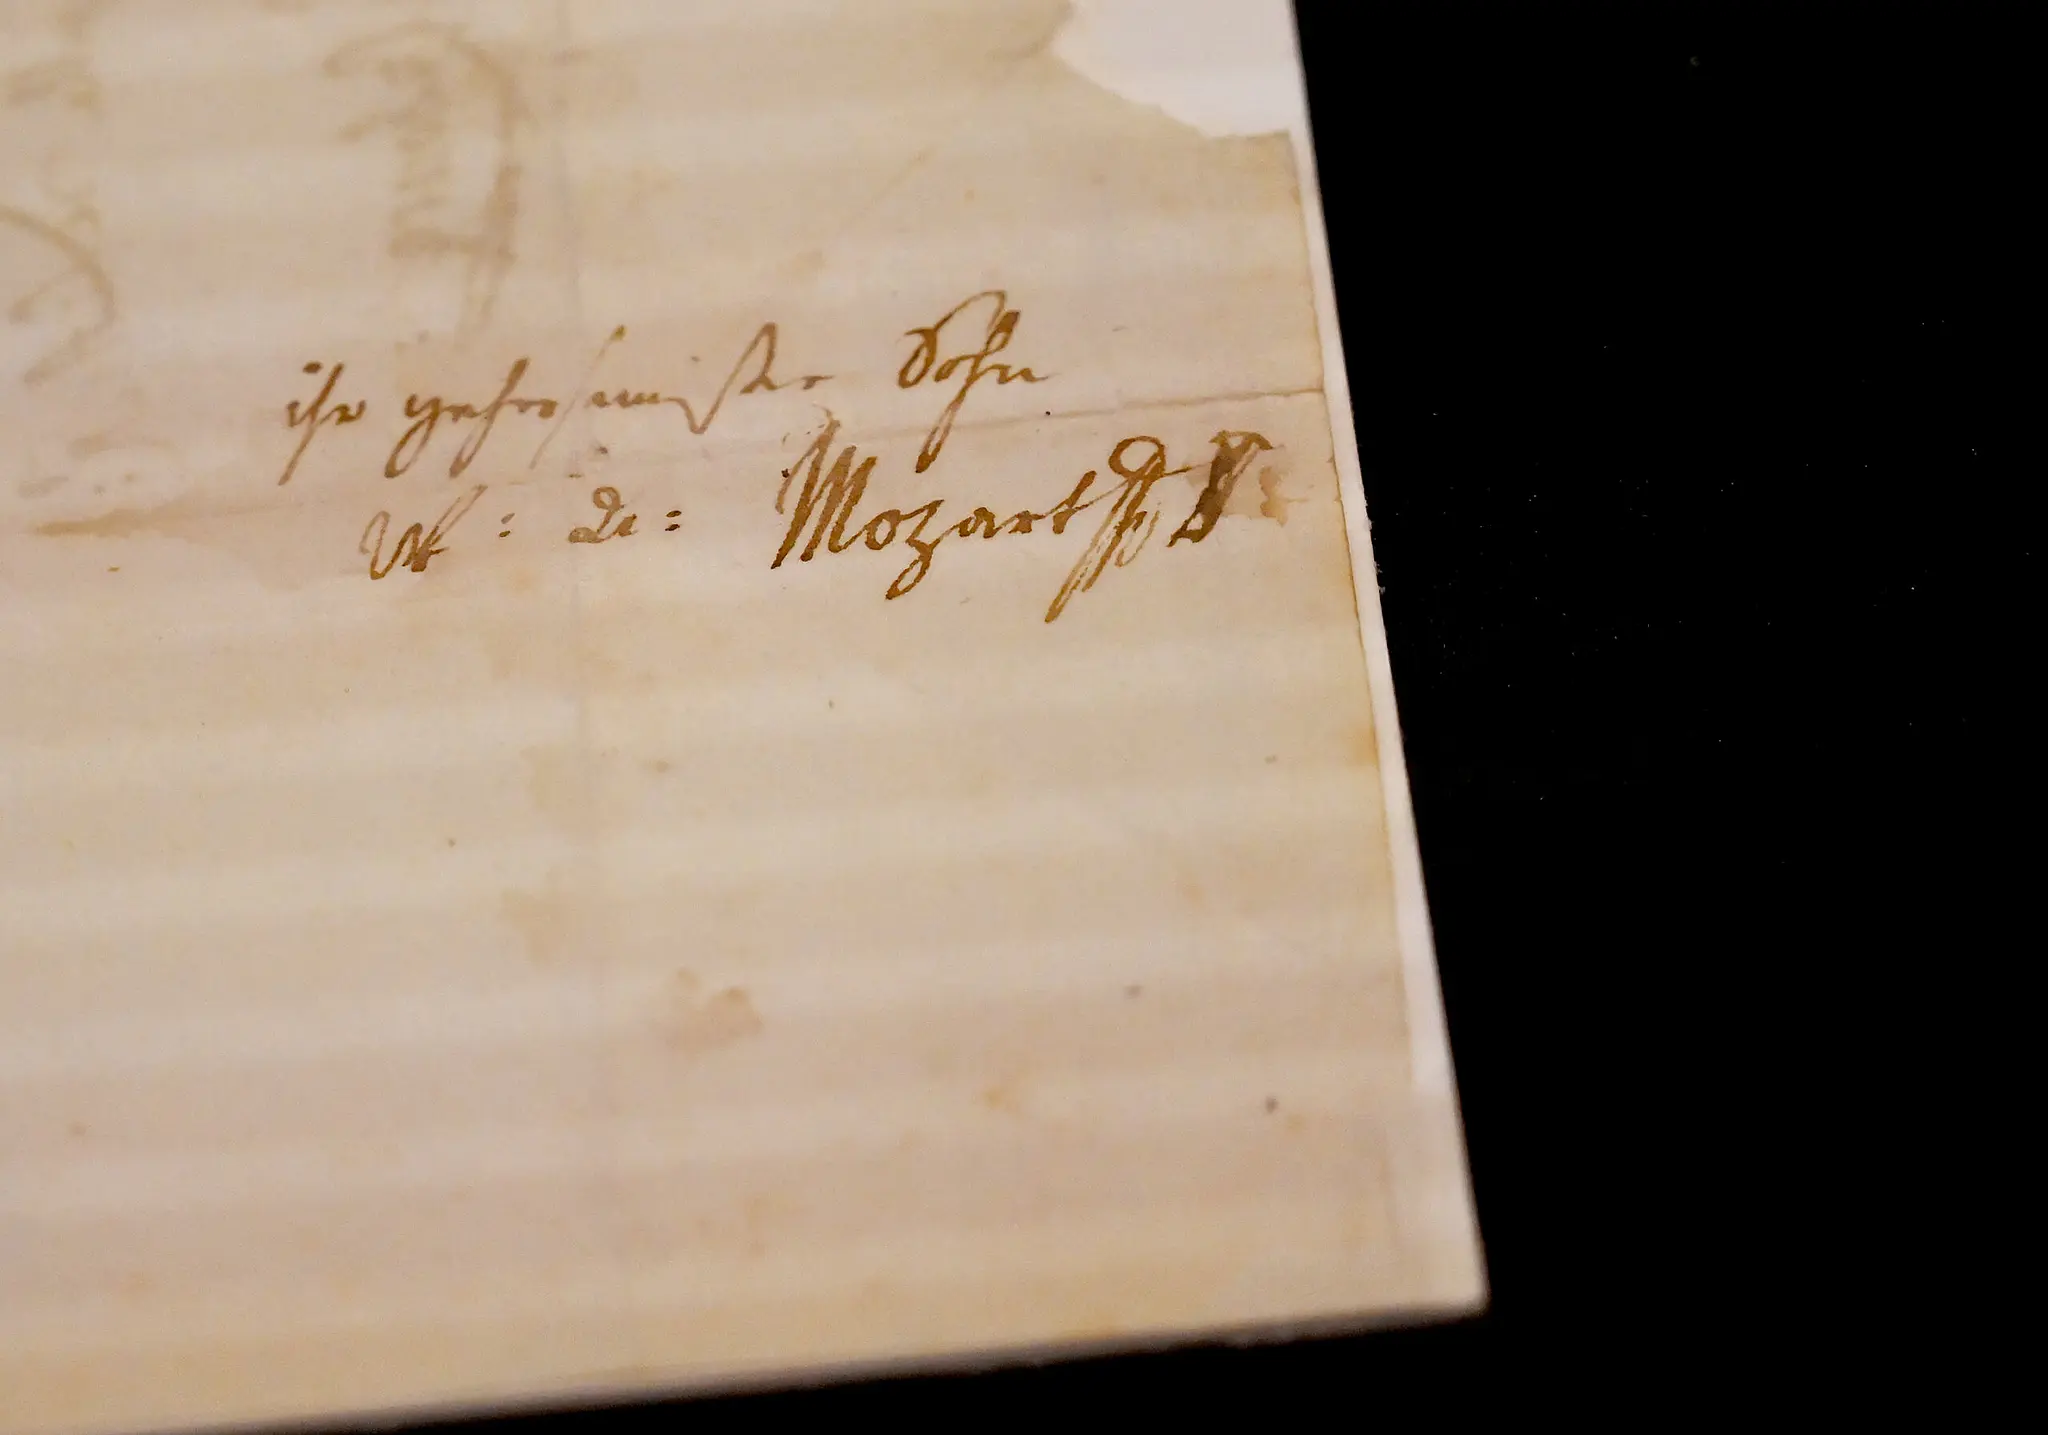 ihr gehorsamster Sohn
W: A: Mozart